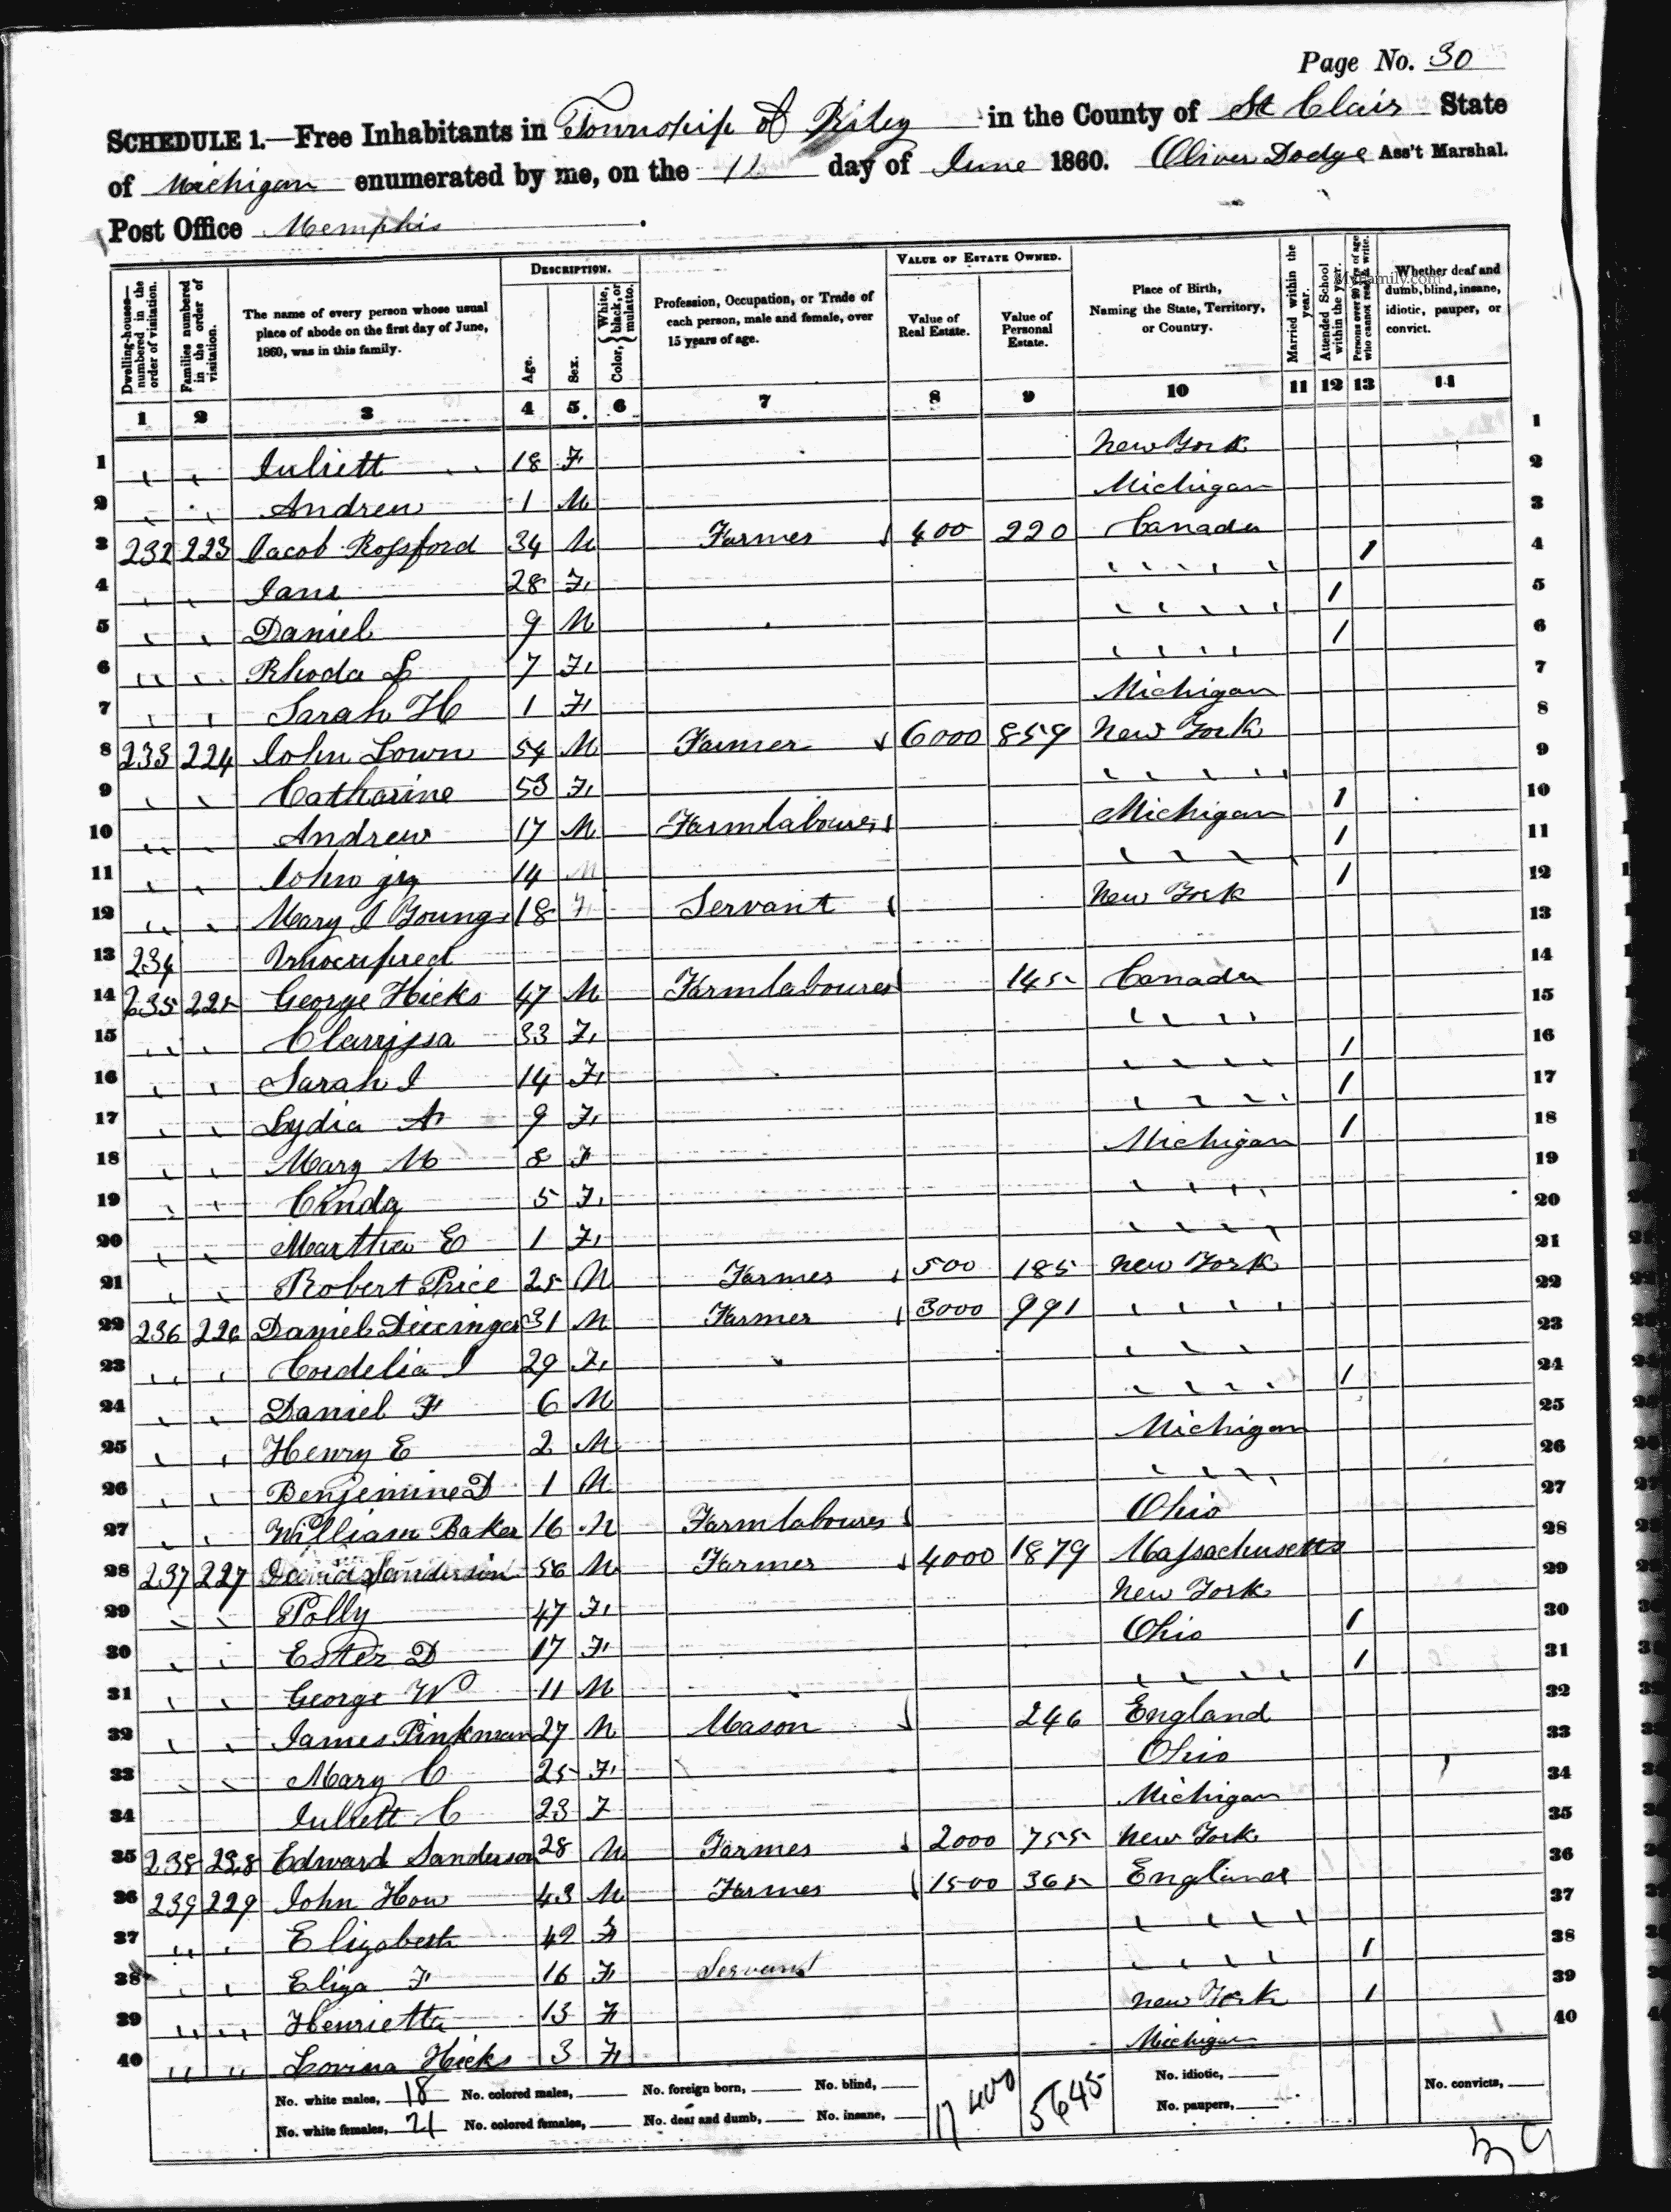 Page No. 30
SCHEDULE 1.—Free Inhabitants in Township of Riley in the County of St Clair State
of Michigan enumerated by me, on the day of June 1860. Oliver Dodge Ass't Marshal.
Post Office Memphis
Dwelling-houses—numbered in the order of visitation. Families numbered in the order of visitation. The name of every person whose usual place of abode on the first day of June, 1860, was in this family. DESCRIPTION. Age. Sex. Color, White, black, or mulatto. Profession, Occupation, or Trade of each person, male and female, over 15 years of age. VALUE OF ESTATE OWNED. Value of Real Estate. Value of Personal Estate. Place of Birth, Naming the State, Territory, or Country. Married within the year. Attended School within the year. Persons over 20 years of age who cannot read & write. Whether deaf and dumb, blind, insane, idiotic, pauper, or convict.
MyFamily.com
1 2 3 4 5. 6 7 8 9 10 11 12 13 14
1 " " Juliett 18 F New York 1
2 " " Andrew 1 M Michigan 2
3 232 223 Jacob Rossford 34 M Farmer 400 220 Canada 3
4 " " Jane 28 F " " " " " 1 4
5 " " Daniel 9 M " " " " " 1 5
6 " " Rhoda L 7 F " " " " 1 6
7 " " Sarah H 1 F Michigan 7
8 233 224 John Lown 54 M Farmer 6000 859 New York 8
9 " " Catharine 53 F " " " " " 9
10 " " Andrew 17 M Farmlabourer Michigan 1 10
11 " " John jr 14 M " " " " 1 11
12 " " Mary J Youngs 18 F Servant New York 1 12
13 234 Unocupied 13
14 235 225 George Hicks 47 M Farmlabourer 145 Canada 14
15 " " Clarrissa 33 F " " " " 15
16 " " Sarah J 14 F " " " " " 1 16
17 " " Lydia A 9 F " " " " 1 17
18 " " Mary M 8 F Michigan 1 18
19 " " Cinda 5 F " " " " 19
20 " " Martha E 1 F " " " " 20
21 " " Robert Price 25 M Farmer 500 185 New York 21
22 236 226 Daniel 31 M Farmer 3000 991 " " " " 22
23 " " Cordelia J 29 F " " " 23
24 " " Daniel F 6 M " " " " 1 24
25 " " Henry E 2 M Michigan 25
26 " " Benjemine D 1 M " " " " 26
27 " " William Baker 16 M Farmlabourer Ohio 27
28 237 227 David Sanderson 56 M Farmer 4000 1879 Massachusetts 28
29 " " Polly 47 F New York 29
30 " " Ester D 17 F Ohio 1 30
31 " " George W 11 M " " " " " 1 31
32 " " James Pinkman 27 M Mason 246 England 32
33 " " Mary C 25 F Ohio 33
34 Juliett C 23 F Michigan 34
35 238 228 Edward Sanderson 28 M Farmer 2000 755 New York 35
36 239 229 John How 43 M Farmer 1500 365 England 36
37 " " Elizabeth 42 F " " " " 37
38 " " Eliza F 16 F Servant " " " " 1 38
39 " " Henrietta 13 F New York 1 39
40 " " Lovina Hicks 3 F Michigan 40
No. white males, 18 No. colored males, No. foreign born, No. blind, 17400 5645 No. idiotic, No. convicts,
No. white females, 21 No. colored females, No. deaf and dumb, No. insane, No. paupers,
39